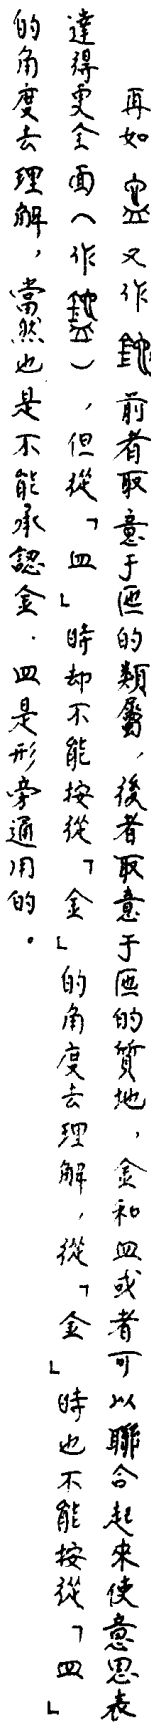 再如又作鉈前者取意于匜的類屬，後者取意于匜的質地，金和皿或者可以聯合起來使意思表
達得更全面（作），但從「皿」時却不能按從「金」的角度去理解，從「金」時也不能按從「皿」
的角度去理解，當然也是不能承認金．皿是形旁通用的。